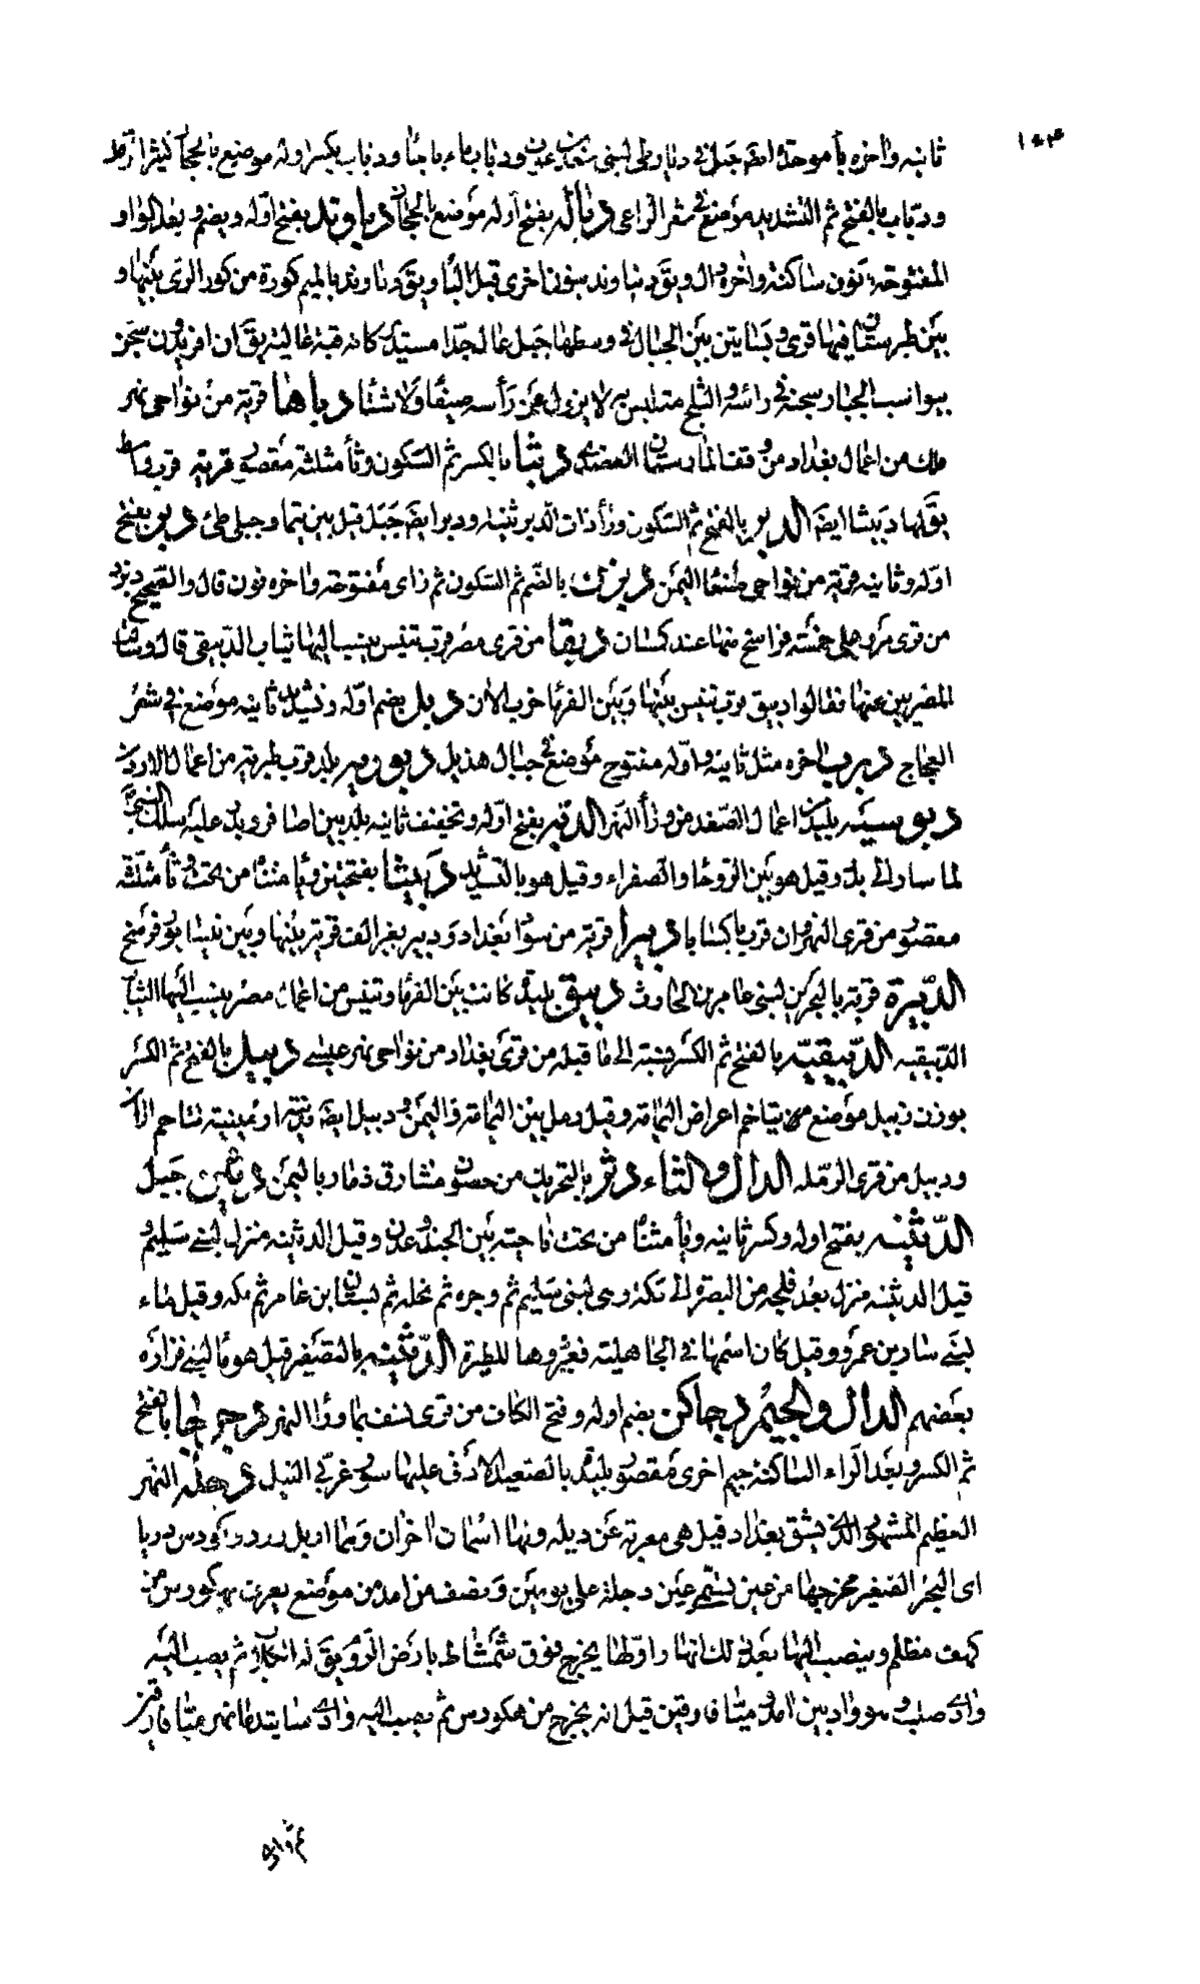 ١٨٣
ثانيه واخره بأ موحدة ايضا جبل في ديار طى لبنى ودباب ماء باجأ ودباب بكسر اوله موضع بالحجاز كثير الرمل
ودبّاب بالفتح ثم التشديد موضع في شعر الراعى دبالة بفتح اوله موضع بالحجاز دباوند بفتح اوله ويضم وبعد الواو
المفتوحة نون ساكنة واخره دال ويق دنباوند بنون اخرى قبل البا ويق دماوند بالميم كورة من كور الرى بينها و
بين طبرستان فيها قرى وبساتين بين الجبال في وسطها جبل عال جدّا مستدير كانه قبة عالية يق ان افريدون سجن
بيوراسب الجبار سجنه في رأسه والثلج متلبس به لا يزول عن رأسه صيفا ولا شتا دباها قرية من نواحى نهر
ملك من اعمال بغداد من وقف المارستان العضدى دبثا بالكسر ثم السكون وثأ مثلثة مقصور قرية قرب واسط
يق لها دبيثا ايضا الدبر بالفتح ثم السكون ورأ ذات الدبر ثنية ودبر ايضا جبل قيل بين تيما وجبلى طئ دبر بفتح
اوّله وثانيه قرية من نواحى صنعا اليمن دبزن بالضم ثم السكون ثم زاى مفتوحة واخره نون قال والصحيح دبزند
من قرى مرو على خمسة فراسخ منها عند كمسان دبقا من قرى مصر قرب تنيس ينسب اليها ثياب الدبيقى قال وسئلت
المصريين عنها فقالوا دبيق قرب تنيس بينها وبين الفرما خرب الان دبل بضم اوّله وتشديد ثانيه موضع في شعر
العجاج دبوب اخره مثل ثانيه واوّله مفتوح موضع في جبال هذيل دبوريه بلد قرب طبرية من اعمال الاردن
دبوسيه بليد من اعمال الصغد من ورأ النهر الدبه بفتح اوّله وتخفيف ثانيه بلد بين اصافر وبدر عليه سلك النبى
لما سار الى بدر وقيل هو بين الروحا والصفراء وقيل هو بالتشديد دبيثا بفتحتين ويأ مثنا من تحت وثأ مثلثة
مقصور من قرى النهروان قرب باكسايا دبيرا قرية من سواد بغداد ودبير بغير الف قرية بينها وبين نيسابور فرسخ
الدّبيرة قرية بالبحرين لبنى عامر بن الحارث دبيق بليد كانت بين الفرما وتنيس من اعمال مصر ينسب اليها الثياب
الدبيقيه الدّبيقيّه بالفتح ثم الكسر نسبة الى ما قبله من قرى بغداد من نواحى نهر عيسى دبيل بالفتح ثم الكسر
بوزن زبيل موضع يتاخم اعراض اليمامة وقيل رمل بين اليمامة واليمن ودبيل ايضا مدينة بارمينية تتاخم الان
ودبيل من قرى الرمله الدال والثاء دثر بالتحريك من حصون مشارق ذمار باليمن دثين جبل
الدّثينه بفتح اوله وكسر ثانيه ويأ مثنا من تحت ناحية بين الجند وعدن وقيل الدثينه منزل لبنى سليم و
قيل الدثينه منزل بعد فلجه من البصرة الى مكة وهى لبنى سليم ثم وجره ثم نخله ثم بستان ابن عامر ثم مكه وقيل ماء
لبنى سيار بن عمرو وقيل كان اسمها في الجاهلية فغيروها للطيرة الدّثينه بالتصغير قيل هو ماء لبنى فزارة
بعضهم الدال والجيم دجاكن بضم اوله وفتح الكاف من قرى نسف بما ورأ النهر دجرجا بالفتح
ثم الكسر وبعد الراء الساكنة جيم اخرى مقصور بليد بالصعيد الادنى عليها سور غربى النيل دجله النهر
العظيم المشهور الذى يشق بغداد قيل هى معربة عن ديله ولها اسمان اخران وهما اريل رود وكودس دريا
اى البحر الصغير مخرجها من عين تسمّى عين دجلة على يومين ونصف من امد من موضع يعرف بهلورس من
كهف مظلم وينصب اليها بعد ذلك انهار اولها يخرج فوق شمشاط بارض الروم يق له ثم يصب اليه
وادى صلب وهو واد بين امد وميافارقين قيل انه يخرج من هلورس ثم يصب اليه وادى ساتيدما نهر ميافارقين